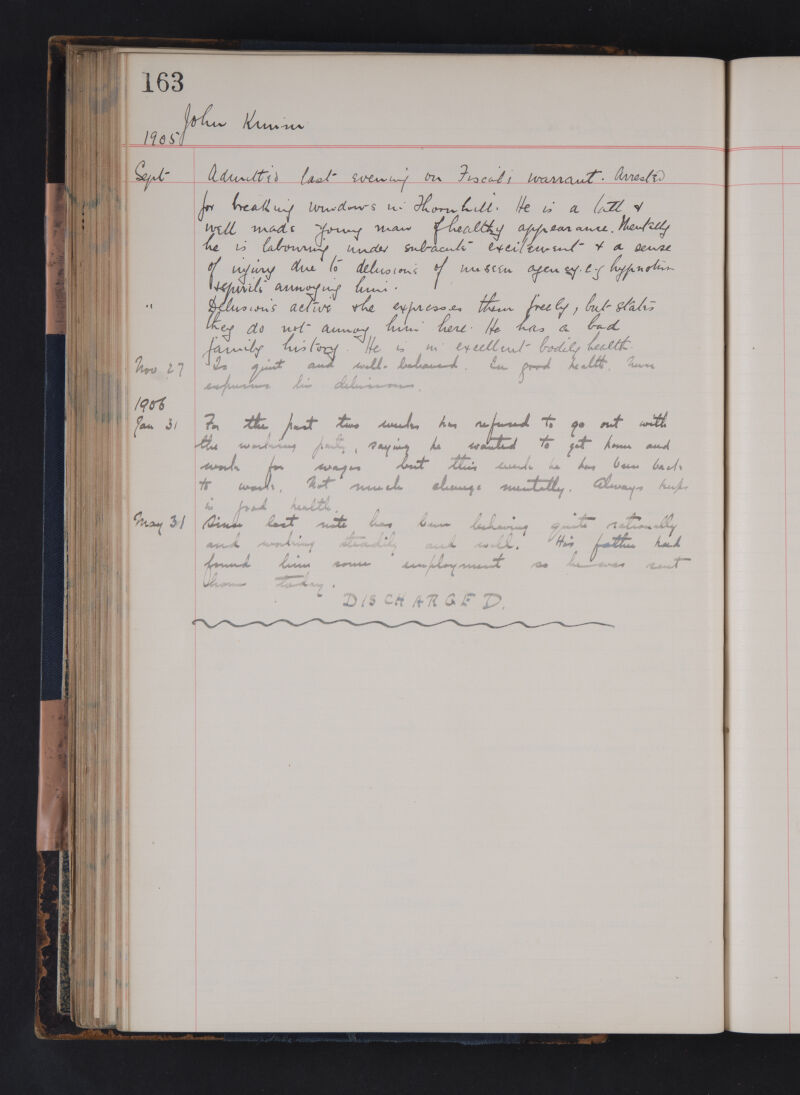 163
John
1905
Sept Admitted last evening on Fiscal's warrant. Arrested
for breaking windows in Thornhill. He is a tall &
well made young man of healthy appearance. Mentally
he is labouring under subacute excitement & a sense
of injury due to delusions of unseen agency. e.g hypnotism
& spirits annoying him.
" Delusions active & he expresses them freely, but states
they do not annoy him here. He has a bad
family history. He is in excellent bodily health.
Nov 27 Is quiet and well-behaved. In good health. Never
expresses his delusions.
1906
Jan 31 For the past two weeks has refused to go out with
the working party, saying he wanted to get home and
work for wages but this week he has been back
to work. Not much change mentally. Always keeps
in good health.
May 31 Since last note has been behaving quite rationally
and working steadily and well. His father had
found him some employment so he was sent
home today.
DISCHARGED.